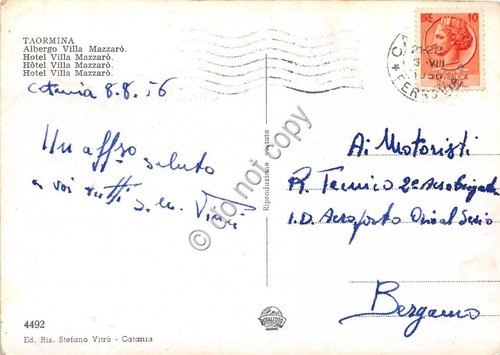 TAORMINA
Albergo Villa Mazzarò.
Hotel Villa Mazzarò.
Hôtel Villa Mazzarò.
Hotel Villa Mazzarò.
Catania 8.8.56
Un aff.so saluto
a voi tutti
LIRE 10
21-22
VIII
FERROVIA
Ai Motoristi
R. Tecnico 2ª Aerobrigata
I.D. Aeroporto Orio al Serio
Bergamo
Riproduzione vietata
4492
Ed. Ris. Stefano Vitrò - Catania
© do not copy